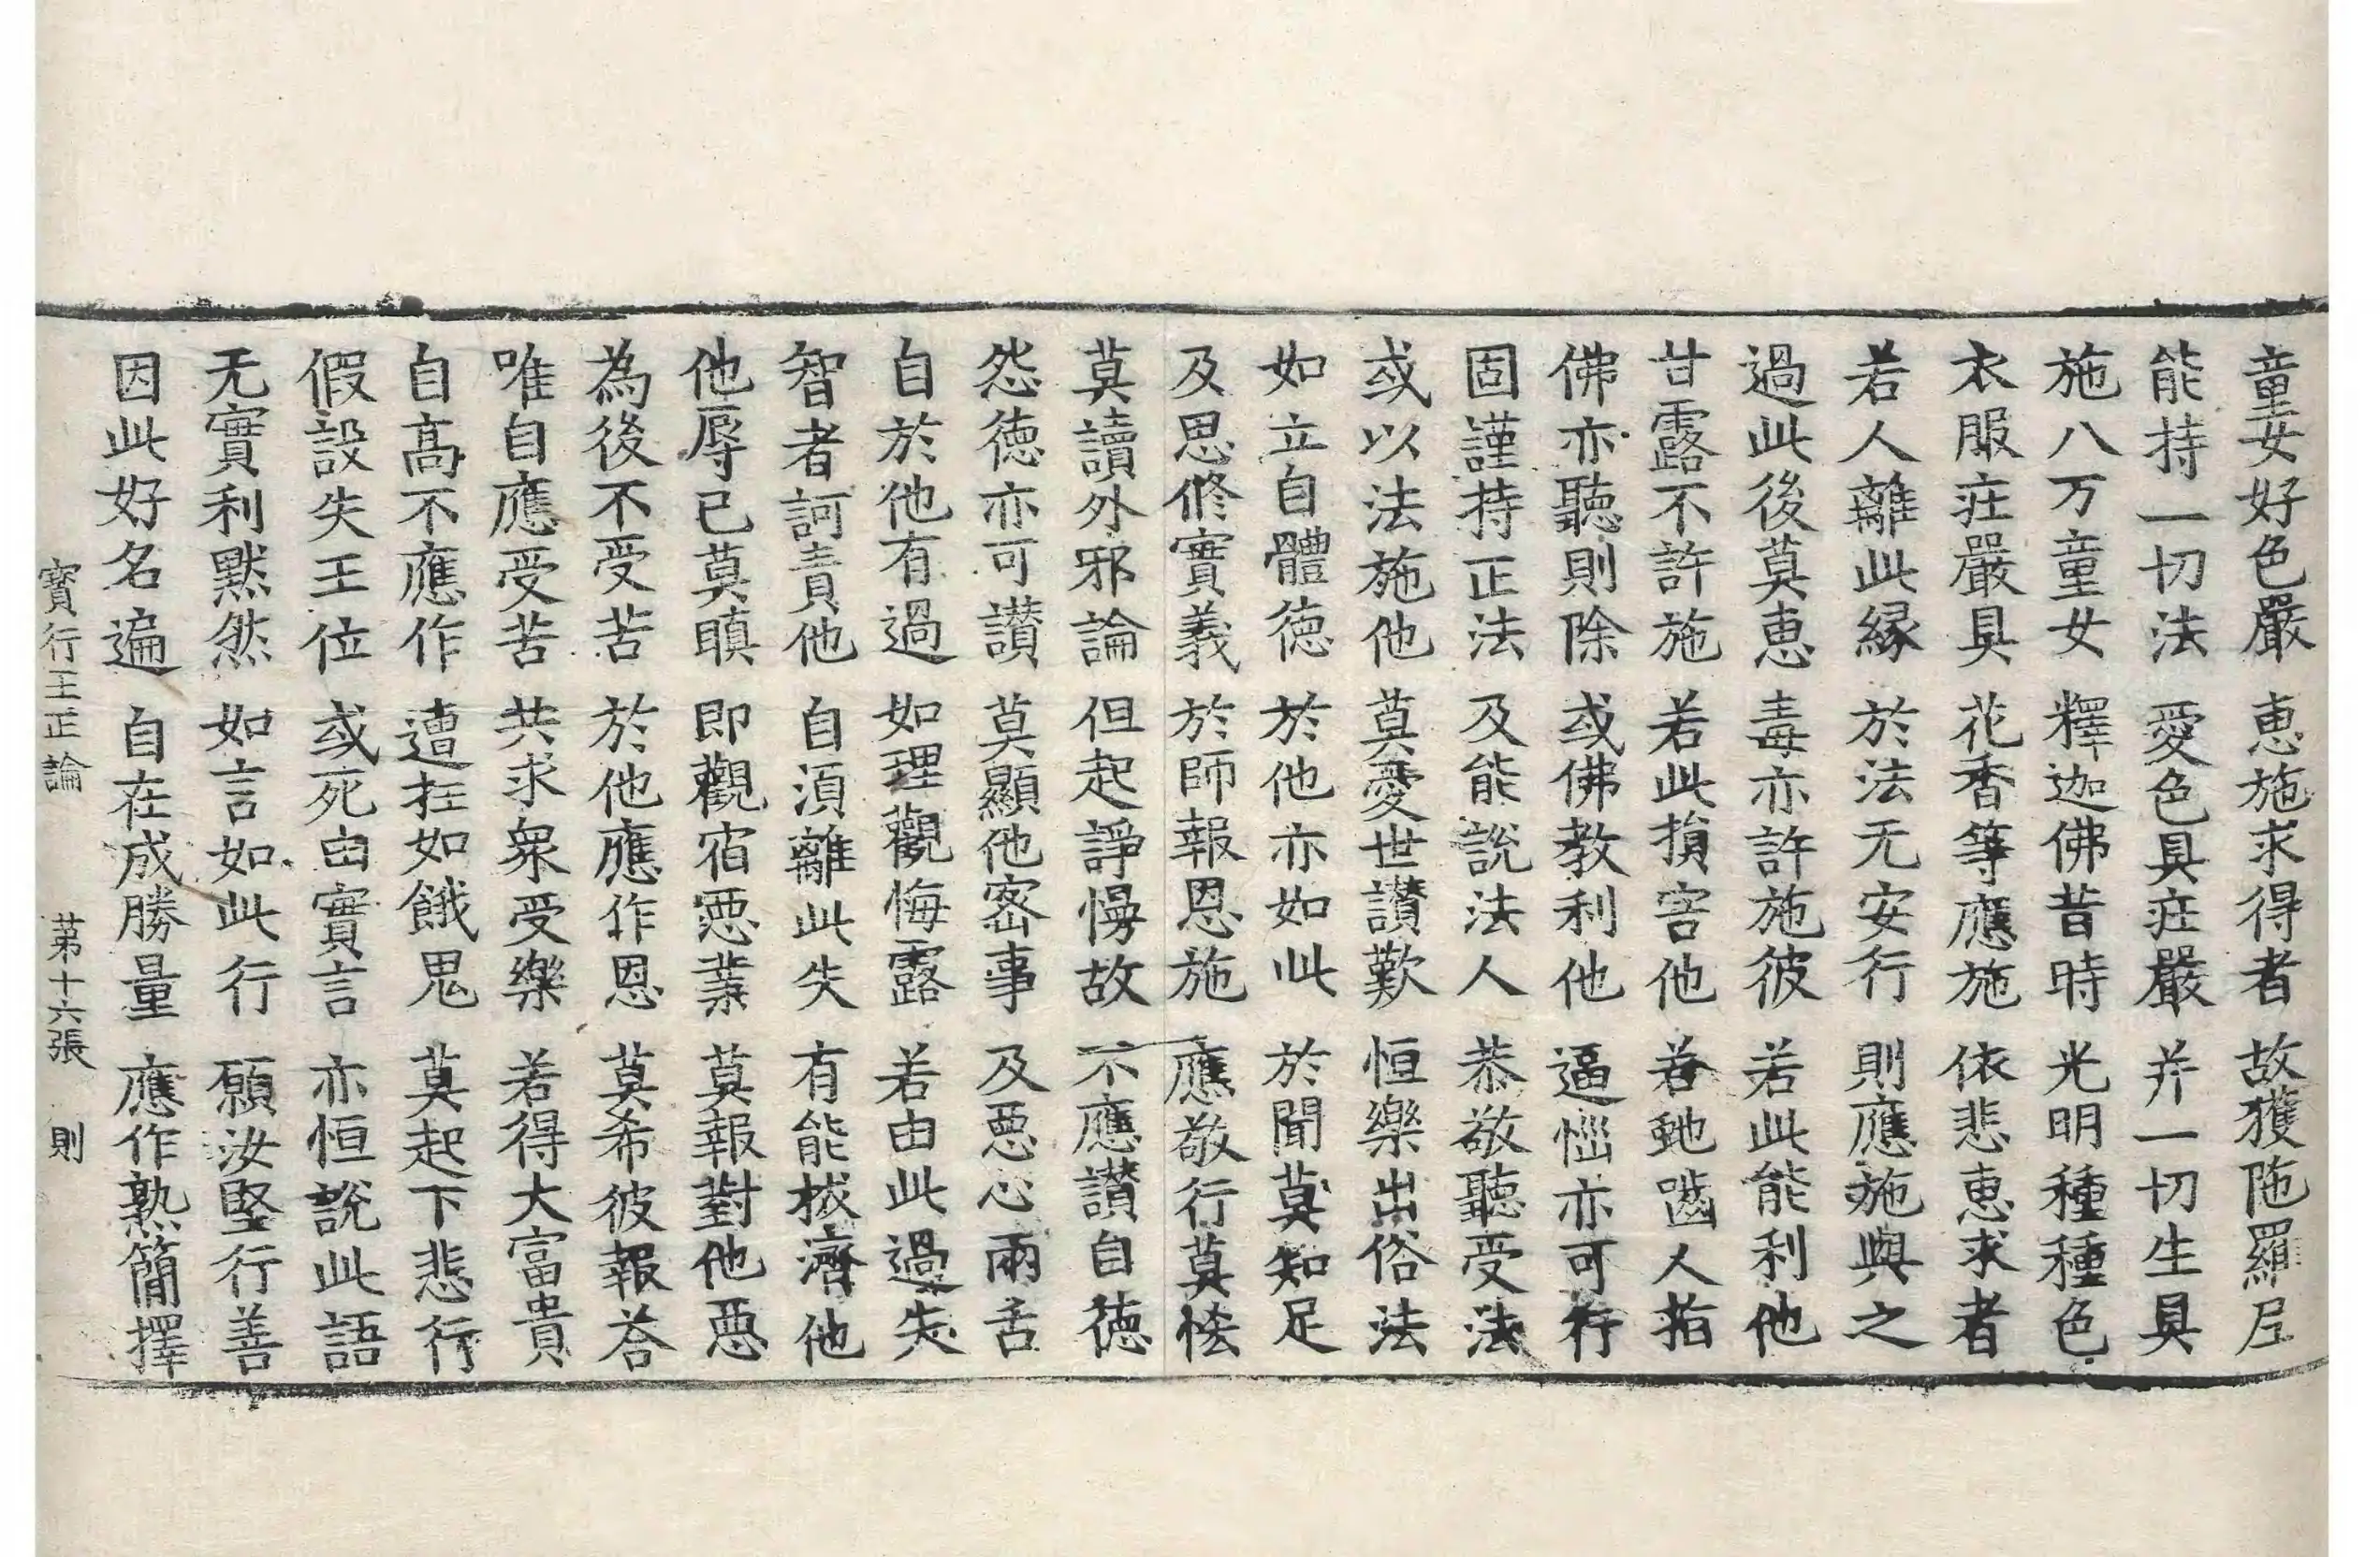 童女好色嚴 恵施求得者 故獲陁羅尼
能持一切法 愛色具莊嚴 并一切生具
施八万童女 釋迦佛昔時 光明種種色
衣服莊嚴具 花香等應施 依悲恵求者
若人離此縁 於法无安行 則應施與之
過此後莫恵 毒亦許施彼 若此能利他
甘露不許施 若此損害他 若虵嚙人指
佛亦聽則除 或佛教利他 逼惱亦可行
固謹持正法 及能說法人 恭敬聽受法
或以法施他 莫愛世讃歎 恒樂出俗法
如立自體徳 於他亦如此 於聞莫知足
及思修實義 於師報恩施 應敬行莫悋
莫讀外邪論 但起諍慢故 不應讃自徳
怨徳亦可讃 莫顯他宻事 及惡心兩舌
自於他有過 如理觀悔露 若由此過失
智者訶責他 自湏離此失 有能拔濟他
他辱已莫瞋 即觀宿惡業 莫報對他惡
為後不受苦 於他應作恩 莫希彼報荅
唯自應受苦 共求衆受樂 若得大富貴
自髙不應作 遭枉如餓鬼 莫起下悲行
假設失王位 或死由實言 亦恒說此語
无實利默然 如言如此行 願汝堅行善
因此好名遍 自在成勝量 應作熟簡擇
寳行王正論 苐十六張 則